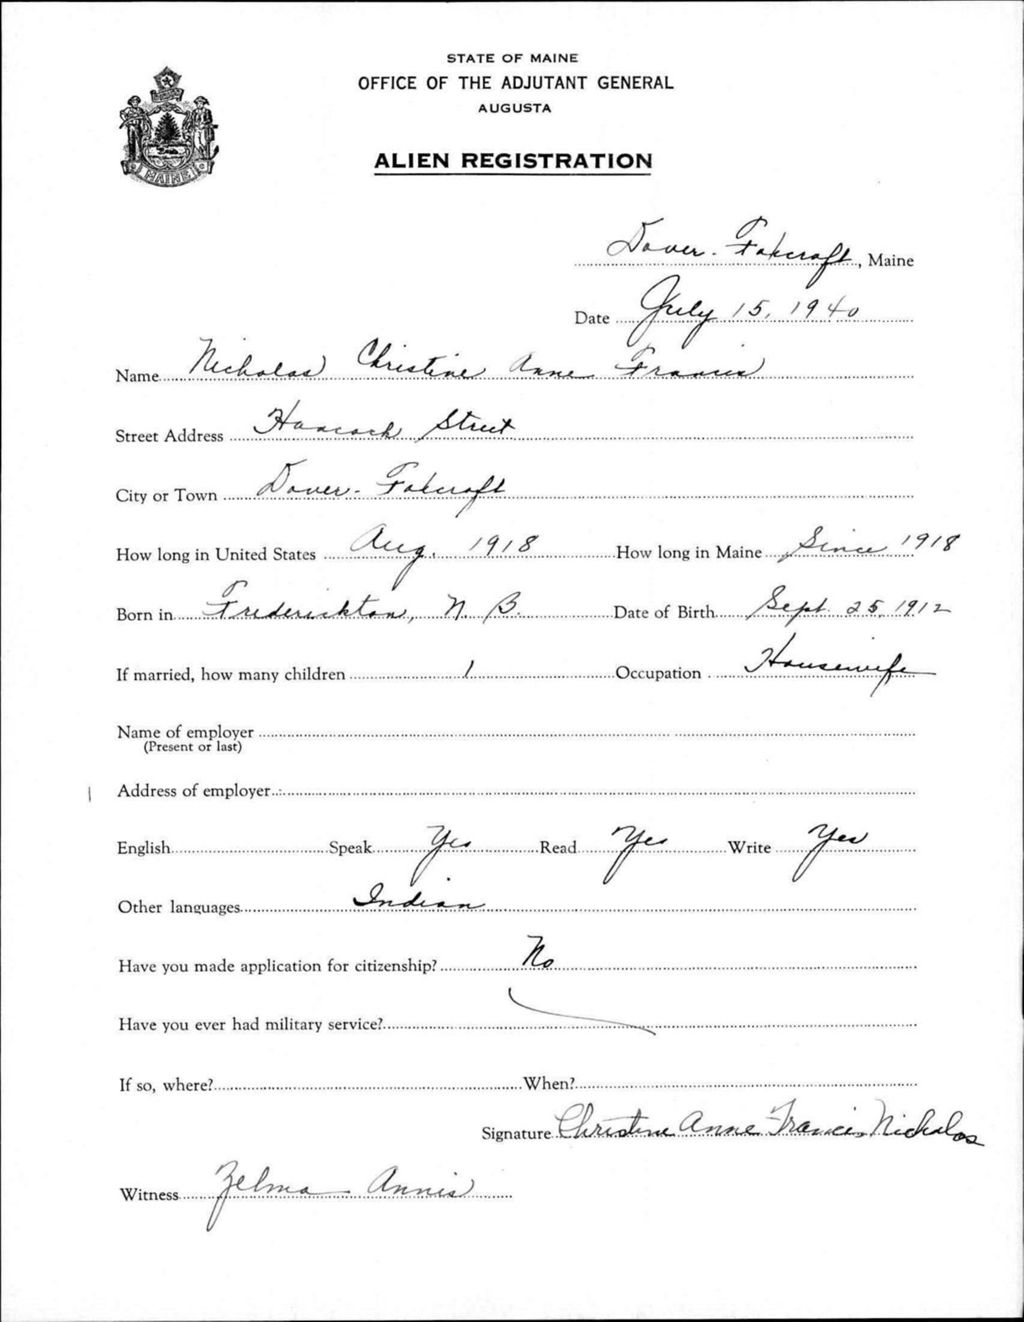 STATE OF MAINE
OFFICE OF THE ADJUTANT GENERAL
AUGUSTA
ALIEN REGISTRATION
MAINE
Dover-Foxcroft, Maine
Date July 15, 1940
Name Nicholas Christine Anne Francis
Street Address Hancock Street
City or Town Dover-Foxcroft
How long in United States Aug. 1918 How long in Maine Since 1918
Born in Frederickton, N. B. Date of Birth Sept. 25, 1912
If married, how many children 1 Occupation Housewife
Name of employer
(Present or last)
Address of employer
English Speak Yes Read Yes Write Yes
Other languages Indian
Have you made application for citizenship? No
Have you ever had military service?
If so, where? When?
Signature Christine Anne Francis Nicholas
Witness Zelma Annis